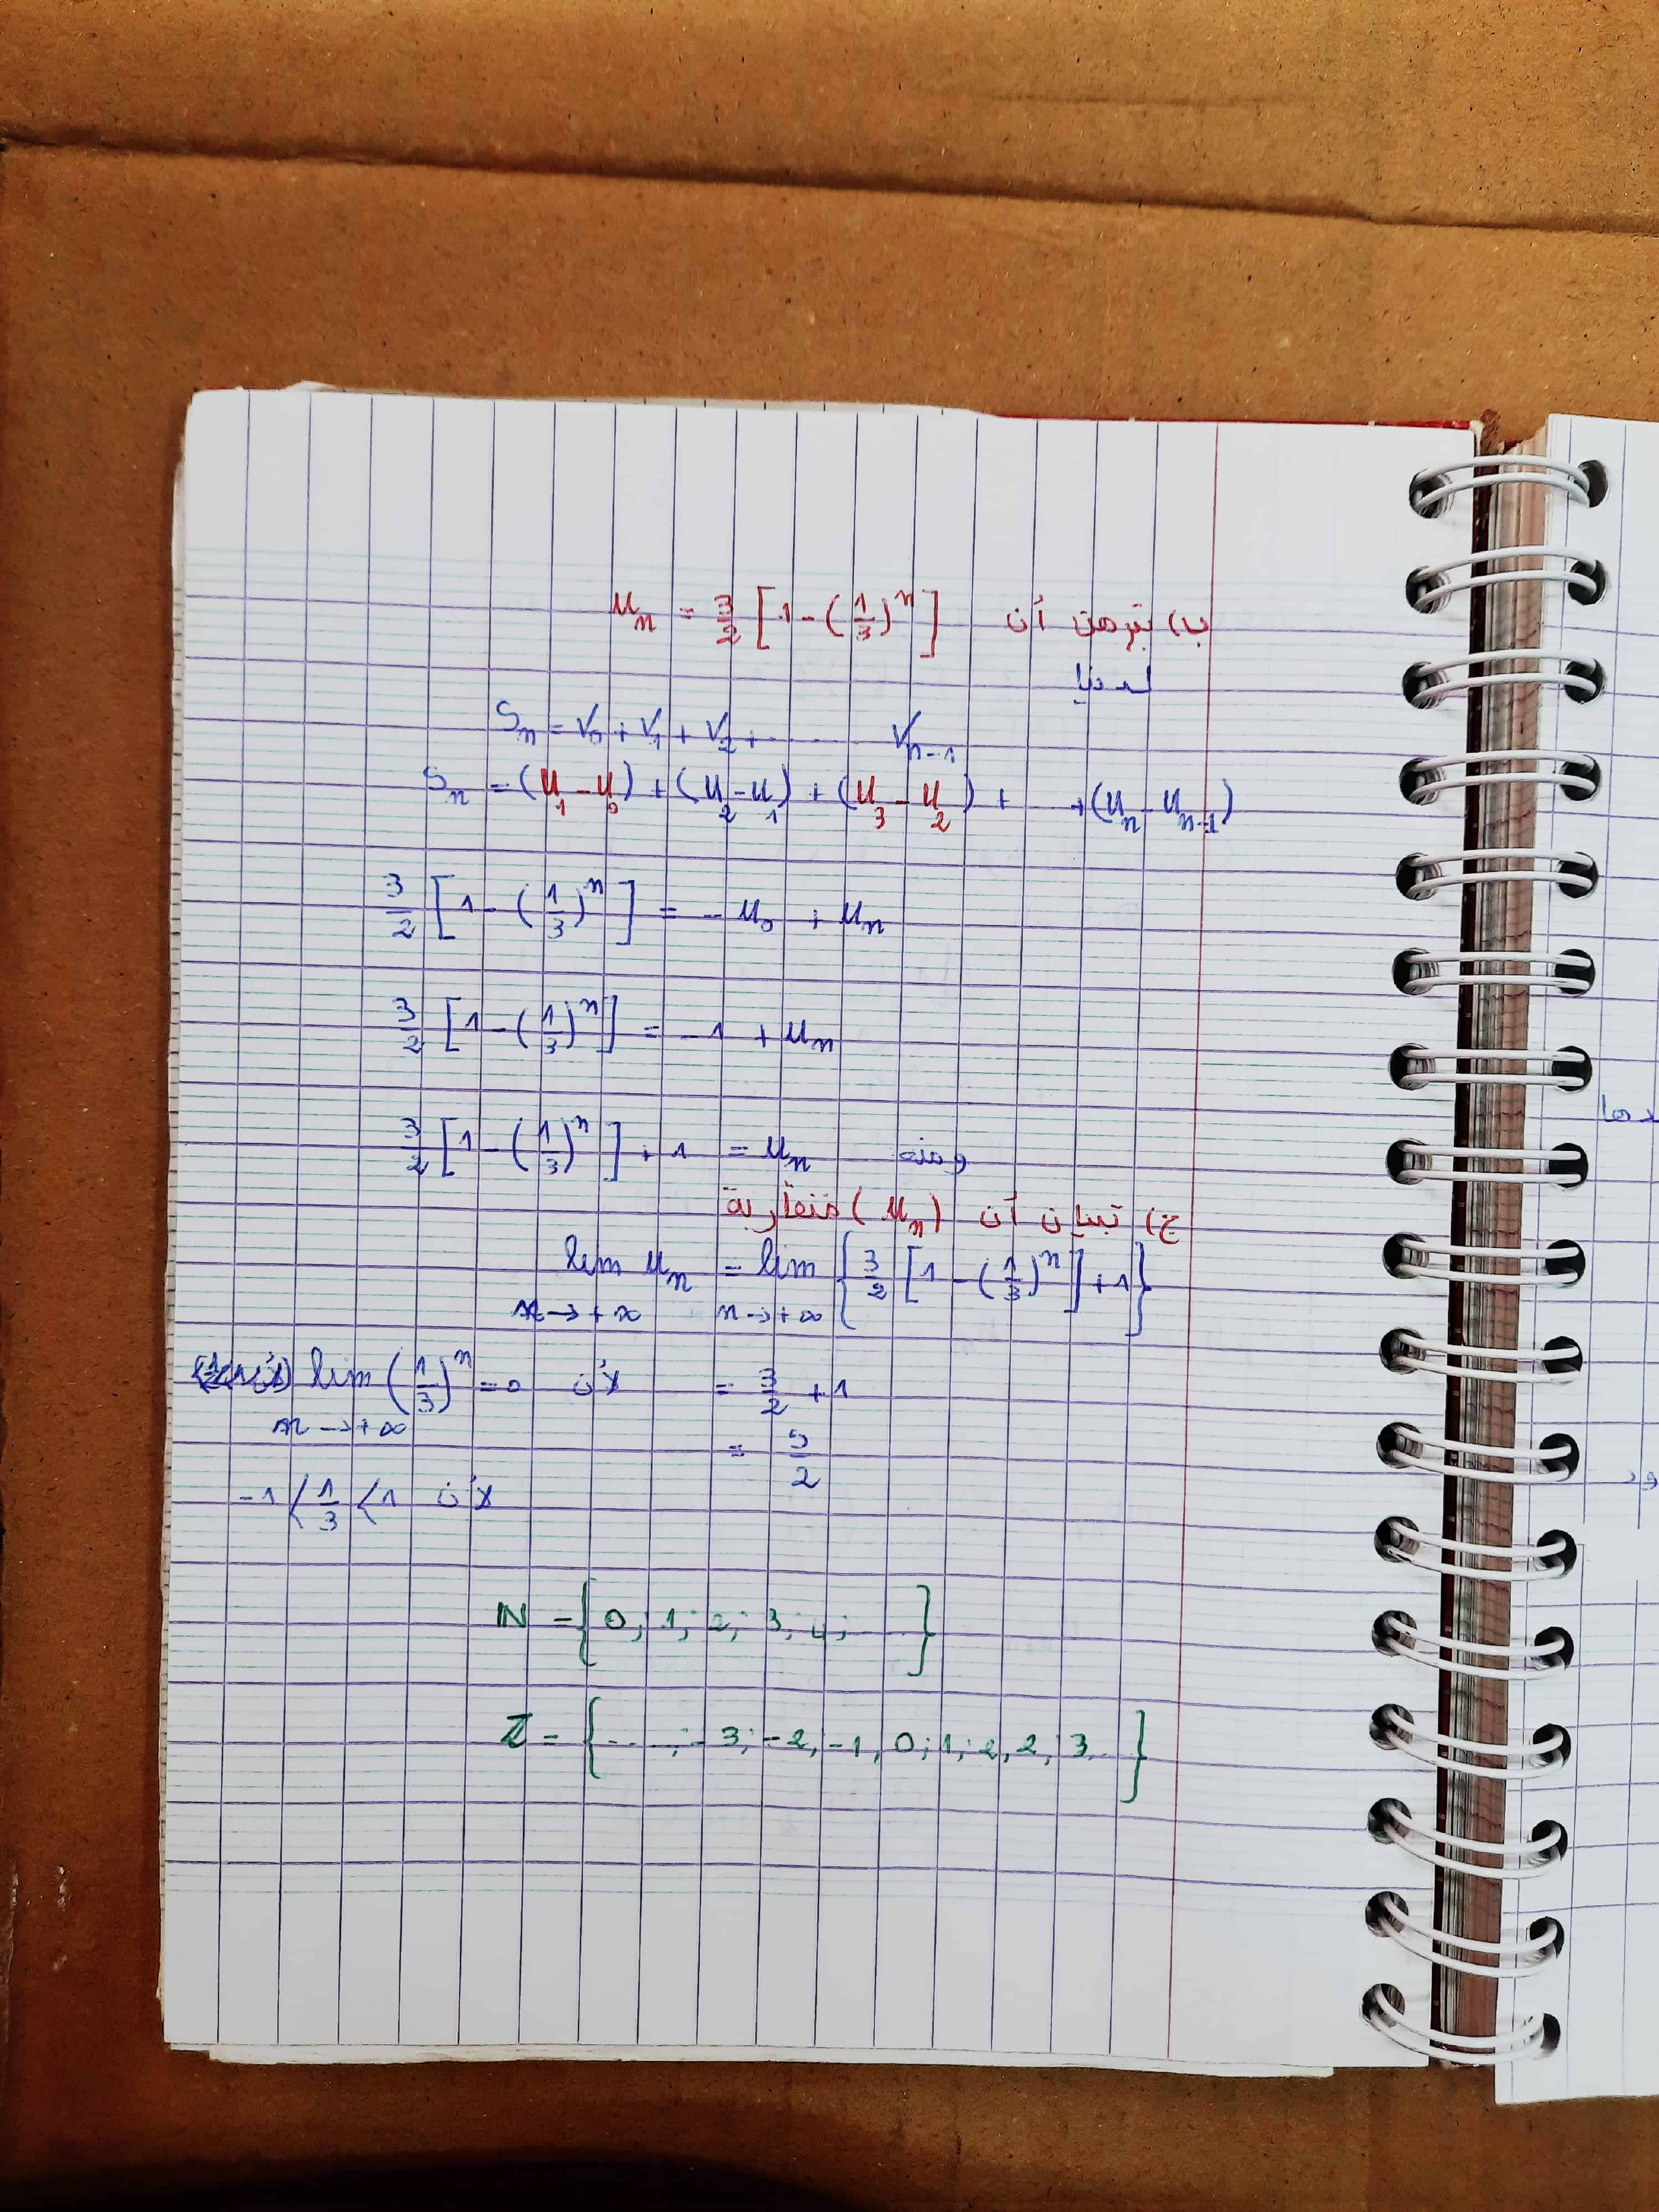 ب) نبرهن أن u_n = 3/2 [1 - (1/3)^n]
لدينا
S_n = V_0 + V_1 + V_2 + ...... V_{n-1}
S_n = (u_1 - u_0) + (u_2 - u_1) + (u_3 - u_2) + ... + (u_n - u_{n-1})
3/2 [1 - (1/3)^n] = - u_0 + u_n
3/2 [1 - (1/3)^n] = - 1 + u_n
ومنه 3/2 [1 - (1/3)^n] + 1 = u_n
ج) تبيان أن (u_n) متقاربة
lim_{n→+∞} u_n = lim_{n→+∞} {3/2 [1 - (1/3)^n] + 1}
= 3/2 + 1 لأن lim_{n→+∞} (1/3)^n = 0
= 5/2
لأن -1 < 1/3 < 1
ℕ = {0; 1; 2; 3; 4; ...}
ℤ = {.... ; -3; -2, -1, 0; 1; 2, 2, 3...}
دها
ود